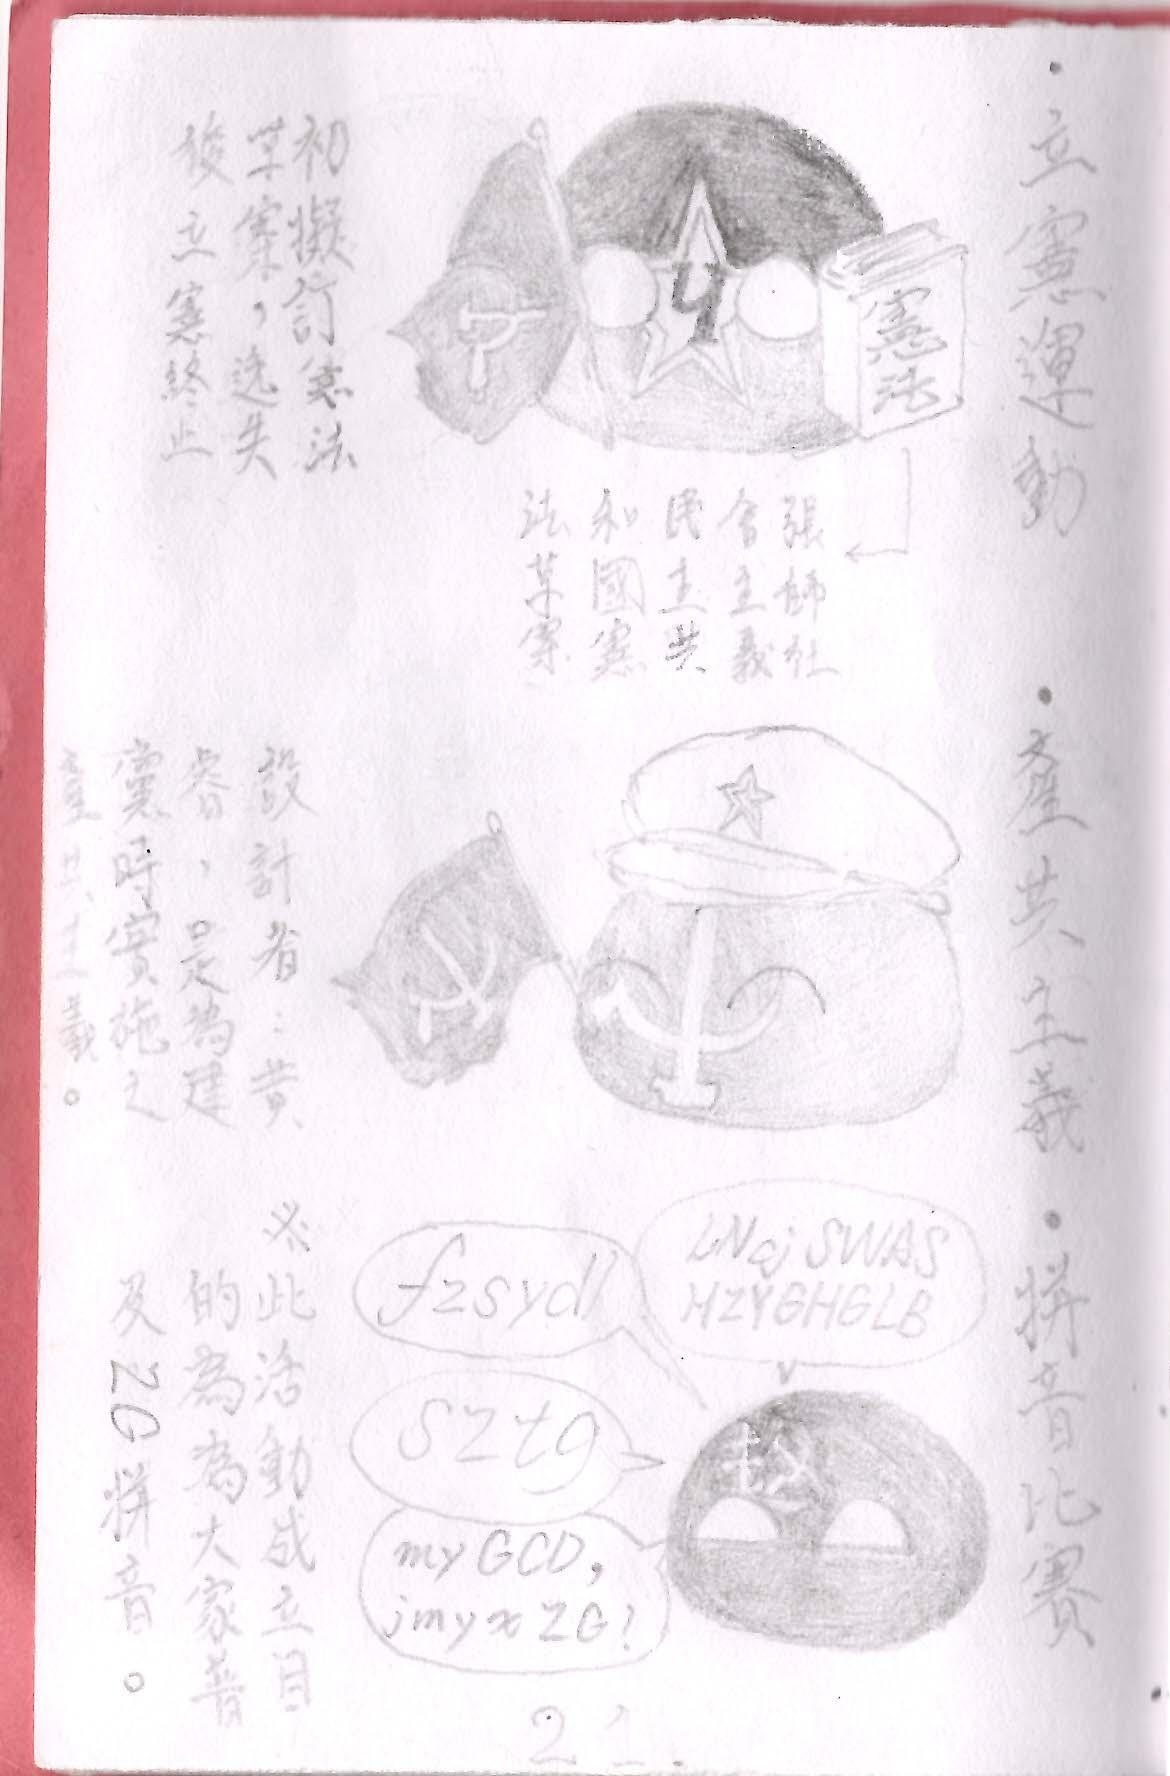 ·立憲運動
憲法
張師社
會主義
民主共
和國憲
法草案
初擬訂憲法
草案，逸失
後立憲終止
·產共主義
設計者：黄
睿，是為建
黨時實施之
產共主義。
·拼音比賽
LNqj SWAS
HZYGHGLB
fzsydl
sztg
my GCD,
jmyx ZG!
※此活動成立目
的為為大家普
及ZG拼音。
2